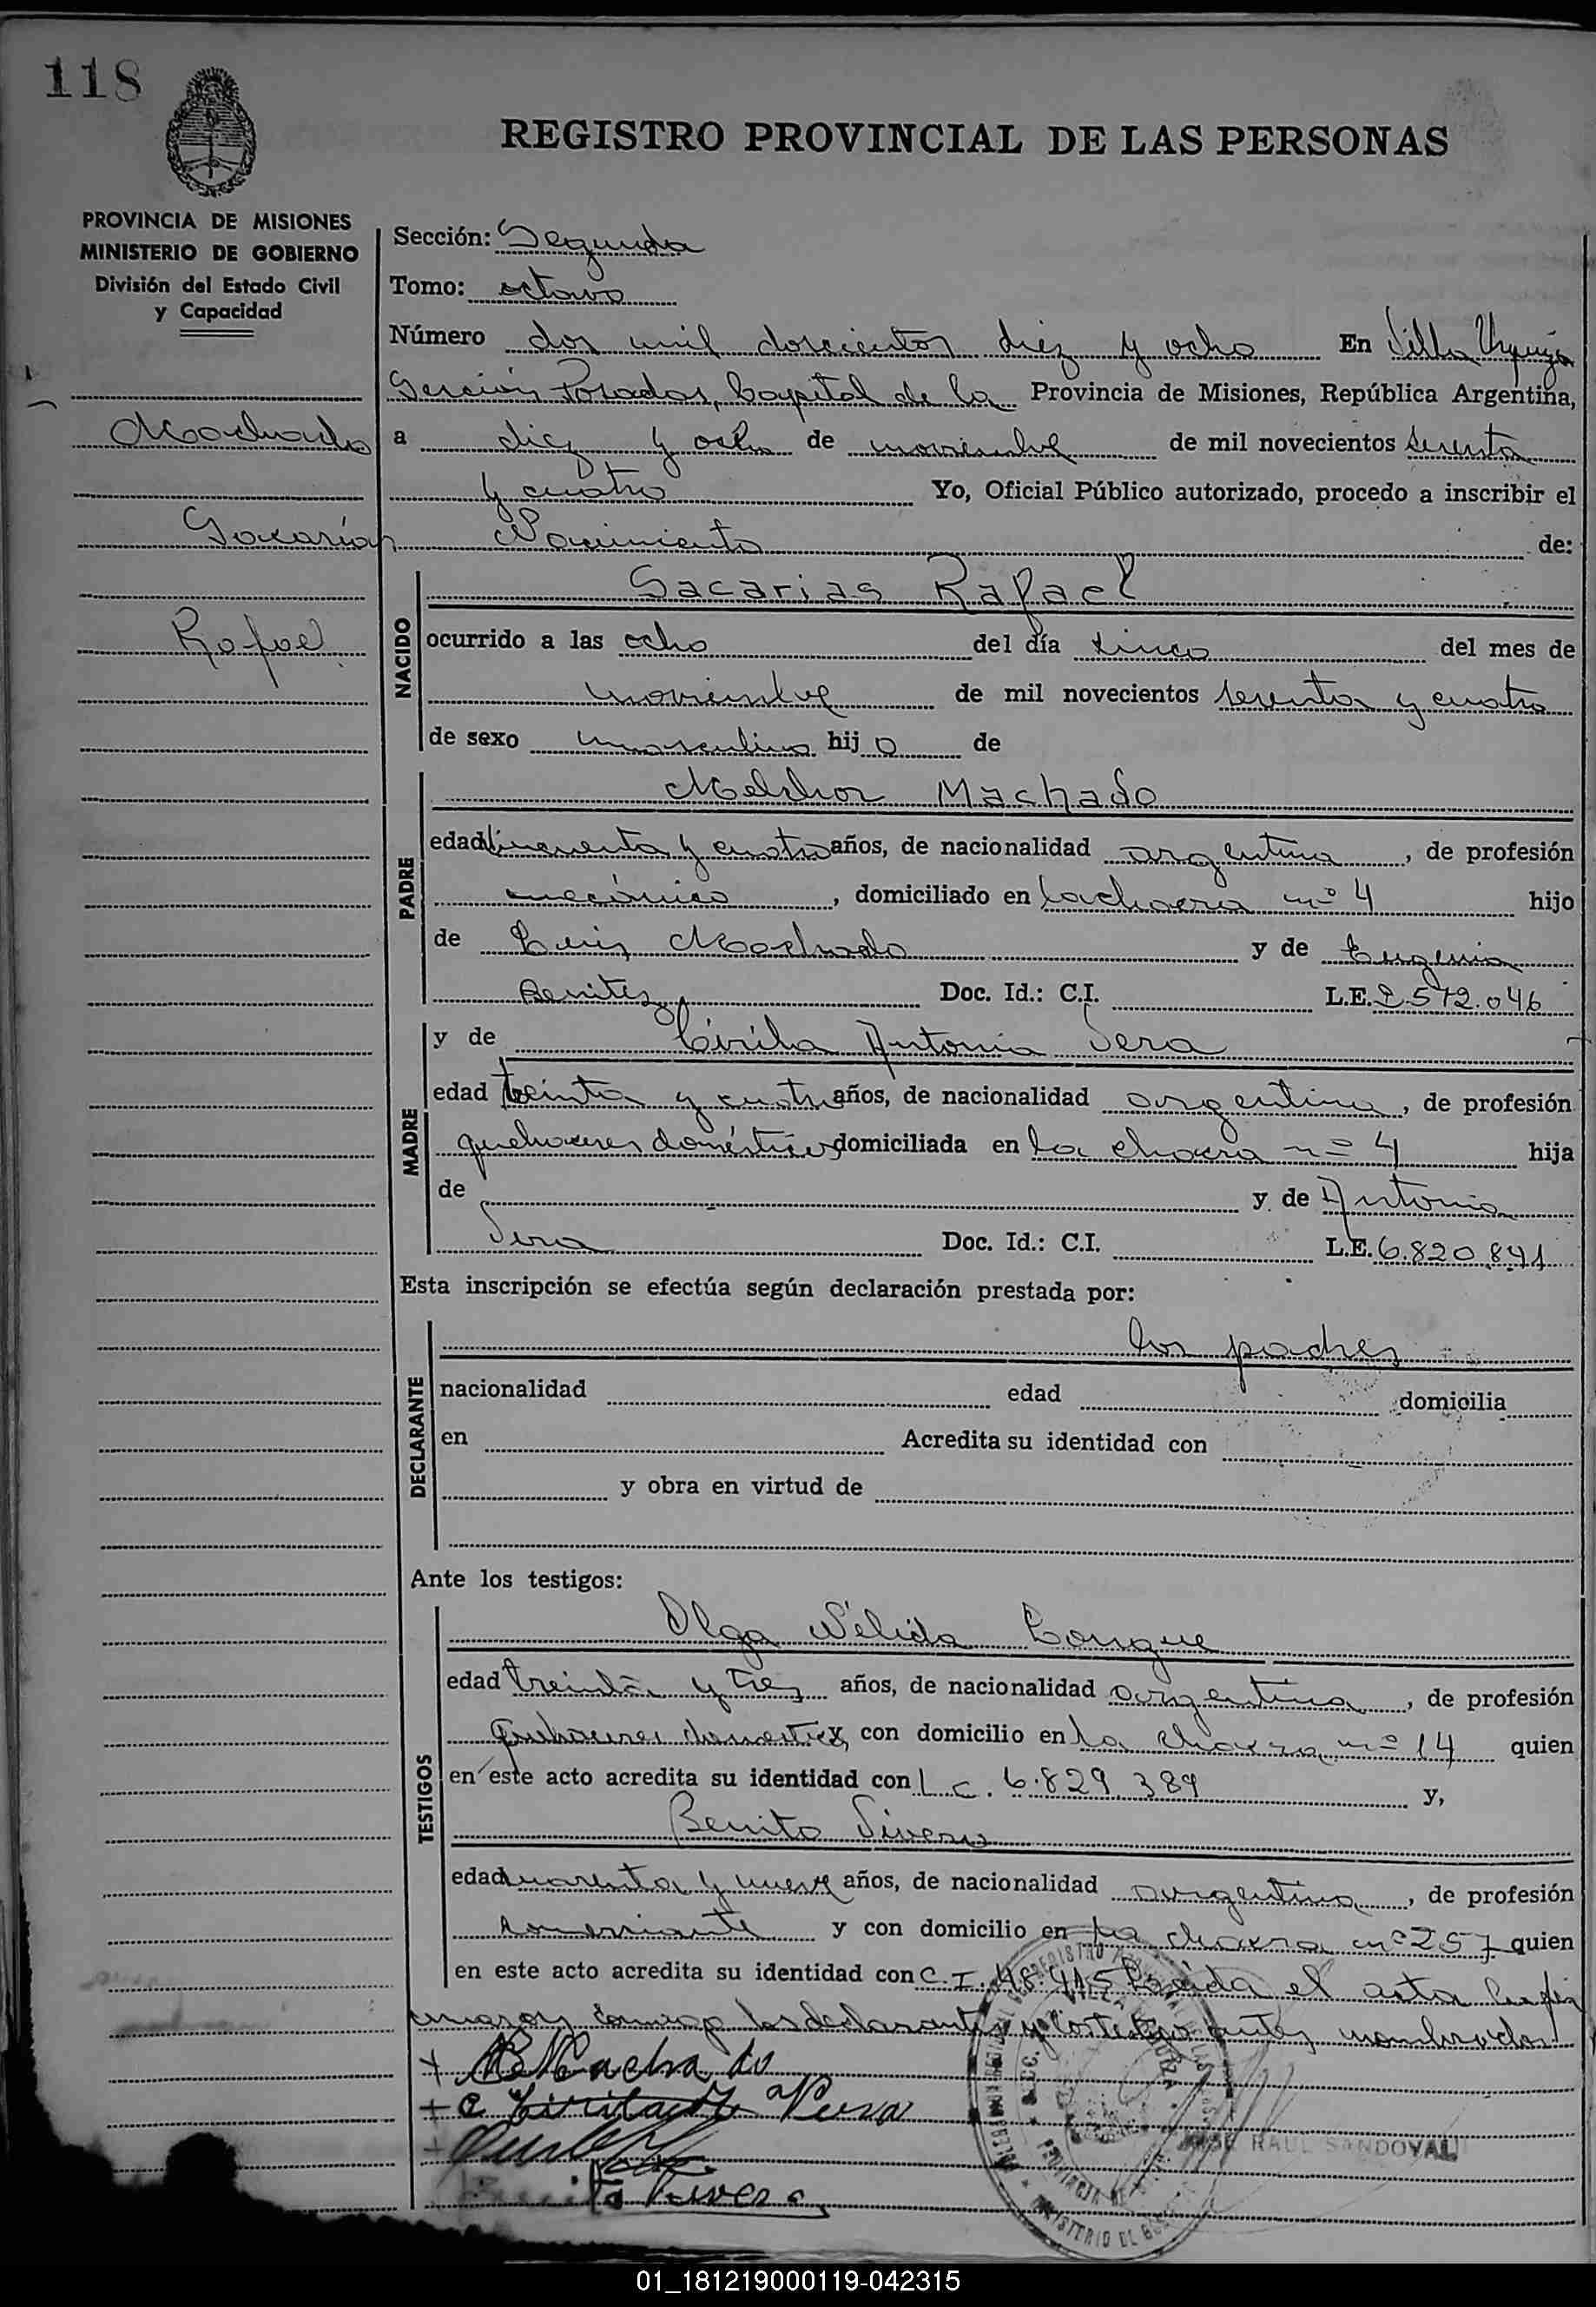 118
REGISTRO PROVINCIAL DE LAS PERSONAS
PROVINCIA DE MISIONES
MINISTERIO DE GOBIERNO
División del Estado Civil
y Capacidad
Machado
Sacarías
Rafael
Sección: Segunda
Tomo: octavo
Número dos mil doscientos diez y ocho En Villa Urquiza
Sección Posadas, Capital de la Provincia de Misiones, República Argentina,
a diez y ocho de noviembre de mil novecientos sesenta
y cuatro Yo, Oficial Público autorizado, procedo a inscribir el
Nacimiento de:
NACIDO
Sacarias Rafael
ocurrido a las ocho del día cinco del mes de
noviembre de mil novecientos sesenta y cuatro
de sexo masculino hijo de
PADRE
Melchor Machado
edad cincuenta y cuatro años, de nacionalidad argentina, de profesión
mecánico, domiciliado en la chacra nº 4 hijo
de Luis Machado y de Eugenia
Benitez Doc. Id.: C.I. L.E. 2.572.046
MADRE
y de Cirila Antonia Vera
edad treinta y cuatro años, de nacionalidad argentina, de profesión
quehaceres domésticos domiciliada en la chacra nº 4 hija
de y de Antonia
Vera Doc. Id.: C.I. L.E. 6.820.841
Esta inscripción se efectúa según declaración prestada por:
DECLARANTE
los padres
nacionalidad edad domicilia
en Acredita su identidad con
y obra en virtud de
Ante los testigos:
TESTIGOS
Olga Nélida
edad treinta y tres años, de nacionalidad argentina, de profesión
quehaceres domesticos, con domicilio en la chacra nº 14 quien
en este acto acredita su identidad con L C. 6.829.389 y,
Benito Rivero
edad cuarenta y nueve años, de nacionalidad argentina, de profesión
comerciante y con domicilio en la chacra nº 257 quien
en este acto acredita su identidad con C. I. 48.415 Leída el acta la fir
maron conmigo los declarantes y los testigos antes nombrados
Machado
Vera
JOSE RAUL SANDOVAL
01_181219000119-042315